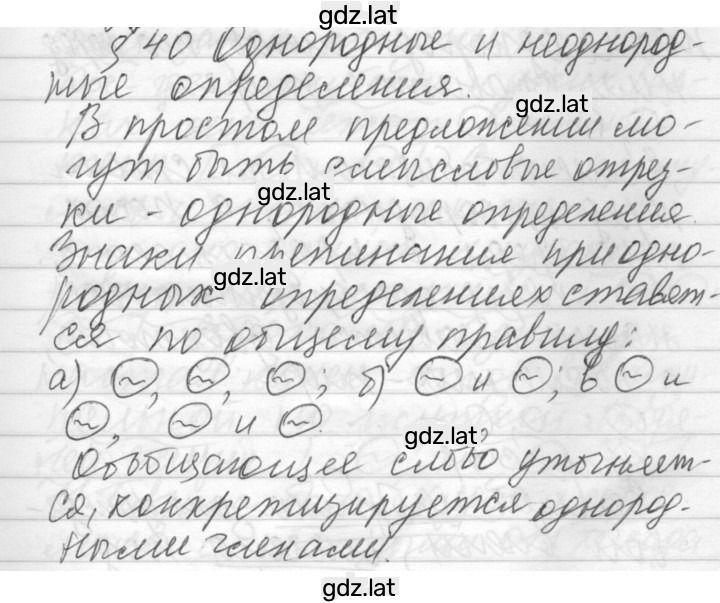 gdz.lat
§ 40 Однородные и неоднород-
ные определения.
gdz.lat
В простом предложении мо-
гут быть смысловые отрез-
gdz.lat
ки - однородные определения.
Знаки препинания при одно-
gdz.lat
родных определениях ставят-
ся по общему правилу:
а) ~, ~, ~; б) ~ и ~; в ~ и
~, ~ и ~.
gdz.lat
Обобщающее слово уточняет-
ся, конкретизируется однород-
ными членами.
gdz.lat